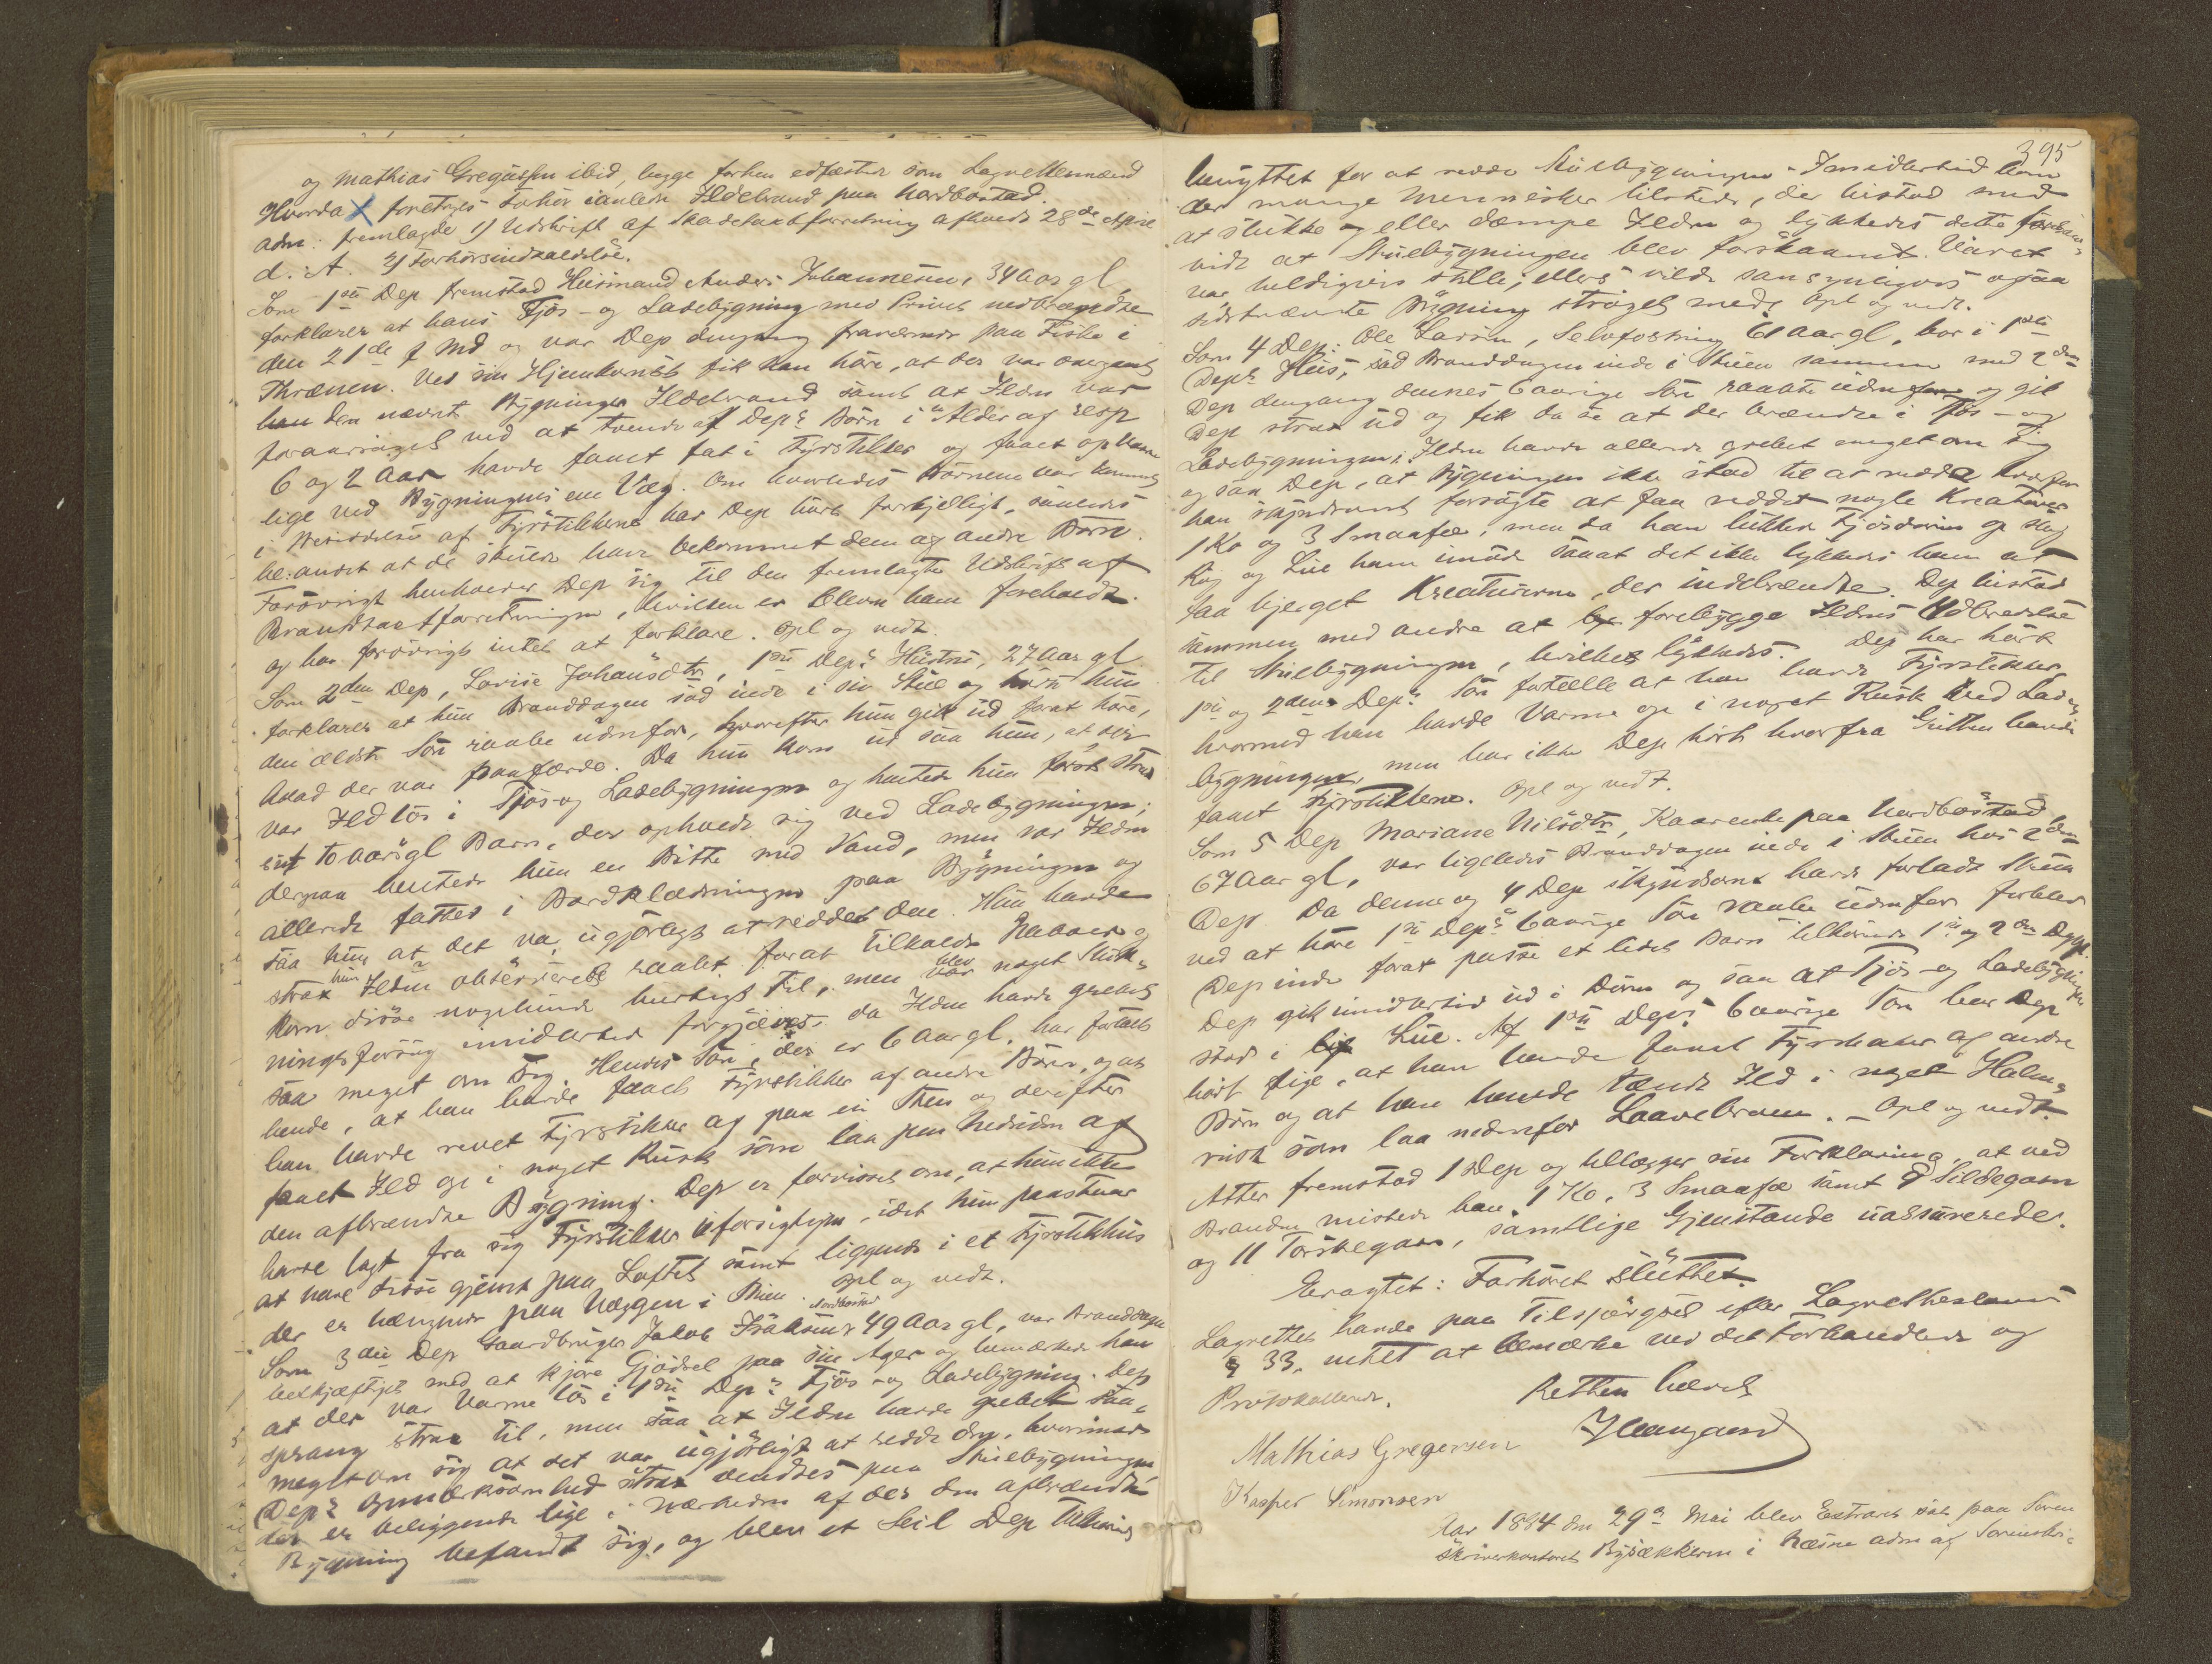 og Mathias Gregussen ibid, begge forhen edfæstede som Lagrettemænd
Hvorda foretoges Forhør ianledn Ildebrand paa Nordbostad.
Adm: fremlagde 1) Udskrift af Skadetaxtforretning afholdt 28de April
d. A. 2) Forhørsindkaldelse.
Som 1ste Dep fremstod Husmand Anders Johannesen, 34 Aar gl,
forklarer at hans Fjøs- og Ladebygning med Privet nedbrændte
den 21de f Md og var Dep dengang fraværende paa Fiske i
Thrænen. Ved sin Hjemkomst fik han høre, at der var overgaaet
ham den nævnte Bygning Ildebrand samt at Ilden var
foraarsaget ved at tvende af Deps Børn i Alder af resp
6 og 2 Aar havde faaet fat i Fyrstikker og faaet op Varme
lige ved Bygningens ene Væg. Om hvorledes Børnene var kommet
i Besiddelse af Fyrstikkene har Dep hørt forskjelligt, saaledes
bl: andet at de skulde have bekommet dem af andre Børn.
Forøvrigt henholder Dep sig til den fremlagte Udskrift af
Brandtaxtforretningen, hvilken er bleven ham foreholdt
og har forøvrigt intet at forklare. Opl og vedt.
Som 2den Dep, Lovise Johansdtr, 1ste Deps Hustru, 27 Aar gl
forklarer at hun Branddagen sad inde i sin Stue og hørte hun
den ældste Søn raabe udenfor, hvorefter hun gik ud forat høre,
hvad der var paafærde. Da hun kom ud saa hun, at der
var Ild løs i Fjøs- og Ladebygningen og hentede hun først strax
sit to aarsgl Barn, der opholdt sig ved Ladebygningen;
derpaa hentede hun en Bøtte med Vand, men var Ilden
allerede fattet i Bordklædningen paa Bygningen og
saa hun at det var ugjørligt at reddet den. Hun havde
strax hun Ilden observerede raabt forat tilkalde Naboer og
kom disse nogenlunde hurtigt til, men blev noget Sluk-
ningsforsøg imidlertid forgjæves, da Ilden havde grebet
saa meget om sig. Hendes Søn, der er 6 Aar gl, har fortalt
hende, at han havde faaet Fyrstikker af andre Børn, og at
han havde revet Fyrstikker af paa en Sten og derefter
faaet Ild op i noget Rusk som laa paa Nedsiden af
den afbrændte Bygning. Dep er forvisset om, at hun ikke
havde lagt fra sig Fyrstikker uforsigtigen, idet hun paastaar
at have disse gjemt paa Loftet samt liggende i et Fyrstikhus
der er hængende paa Væggen i Stuen. Opl og vedt.
Som 3die Dep Gaardbruger Jakob Isaksen Nordbostad 49 Aar gl, var Branddagen
beskjæftiget med at kjøre Gjødsel paa sin Ager og bemærkede han
at der var Varme løs i 1ste Deps Fjøs- og Ladebygning. Dep
sprang strax til, men saa at Ilden havde grebet saa
meget om sig at det var ugjørligt at redde den, hvorimod
Deps Opmærksomhed strax vendtes paa Stuebygningen
der er beliggende lige i Nærheden af der den afbrændte
Bygning befandt sig, og blev et Seil Dep tilhørende
395
benyttet for at redde Stuebygningen. Imidlertid kom
der mange Mennesker tilstede, der bistod med
at slukke og eller dæmpe Ilden og lykkedes dette forsaa-
vidt at Stuebygningen blev forskaanet. Været
var heldigvis stille; ellers vilde sansynligvis ogsaa
sidstnævnte Bygning strøget med. Opl og vedt.
Som 4 Dep: Ole Larsen, Selvfostring 61 Aar gl, bor i 1ste
Deps Hus, sad Branddagen inde i Stuen sammen med 2den
Dep dengang dennes 6aarige Søn raabte udenfor og gik
Dep strax ud og fik da se at der brændte i Fjøs- og
Ladebygningen; Ilden havde allerede grebet meget om sig
og saa Dep, at Bygningen ikke stod til at redde hvorfor
han skyndsomt forsøgte at faa reddet nogle Kreaturer
1 Ko og 3 Smaafæ, men da han lukket Fjøsdøren op slog
Røg og Lue ham imøde saaat det ikke lykkedes ham at
faa bjerget Kreaturerne, der indebrændte. Dep bistod
sammen med andre at forebygge Ildens Udbredelse
til Stuebygningen, hvilket lykkedes. Dep har hørt
1ste og 2den Deps Søn fortælle at han havde Fyrstikker,
hvormed han havde Varme op i noget Rusk ved Lade-
bygningen, men har ikke Dep hørt hvorfra Gutten havde
faaet Fyrstikkene. Opl og vedt.
Som 5 Dep Mariane Nilsdtr, Kaarenke paa Nordbostad
67 Aar gl, var ligeledes Branddagen inde i Stuen hos 2den
Dep. Da denne og 4 Dep skyndsomt havde forladt Stuen
ved at høre 1ste Deps 6aarige Søn raabe udenfor forblev
Dep inde forat passe et lidet Barn tilhørende 1ste og 2den Dep.
Dep gik imidlertid ud i Døren og saa at Fjøs- og Ladebygningen
stod i Lue. Af 1ste Deps 6aarige Søn har Dep
hørt sige, at han havde faaet Fyrstikker af andre
Børn og at han havde tændt Ild i noget Halm-
rusk som laa nedenfor Laavebroen. - Opl og vedt.
Atter fremstod 1 Dep og tillægger sin Forklaring, at ved
Branden mistede han 1 Ko, 3 Smaafæ samt 9 Sildegarn
og 11 Torskegarn, samtlige Gjenstande uassurerede.
Eragtet: Forhøret sluttet.
Lagrettet havde paa Tilspørgsel efter Lagretteslovens
§ 33, intet at bemærke ved det Forhandlede og
Protokollerede.
Retten hævet
JHaugaard
Mathias Gregersen
Kasper Simonsen
Aar 1884 den 29de Mai blev Extraret sat paa Soren
skriverkontoret Bysækkeren i Næsne adm af Sorenskri-